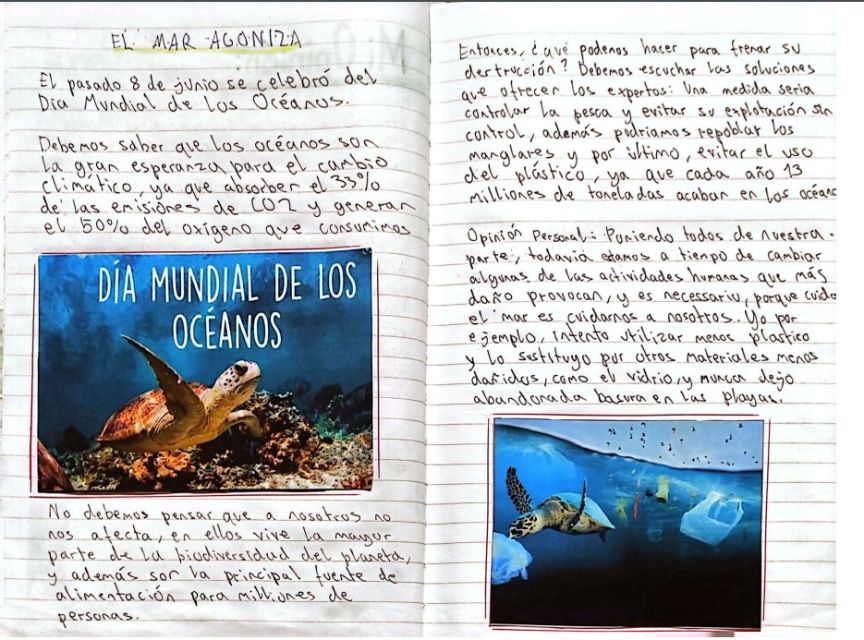 EL MAR AGONIZA
El pasado 8 de junio se celebró del
Día Mundial de los Océanos.
Debemos saber que los océanos son
la gran esperanza para el cambio
climático, ya que absorber el 33%
de las emisiónes de CO2 y generan
el 50% del oxígeno que consumimos
DÍA MUNDIAL DE LOS
OCÉANOS
No debemos pensar que a nosotros no
nos afecta, en ellos vive la mayor
parte de la biodiversidad del planeta,
y además sor la principal fuente de
alimentación para millones de
personas.
Entonces, ¿qué podemos hacer para frenar su
destrucción? Debemos escuchar las soluciones
que ofrecer los expertos: Una medida seria
controlar la pesca y evitar su explotación sin
control, además podriamos repoblar los
manglares y por último, evitar el uso
del plástico, ya que cada año 13
milliones de toneladas acaban en los océano
Opinión Personal: Poniendo todos de nuestra
parte, todavia estamos a tiempo de cambiar
algunas de las actividades humanas que más
daño provocan, y es necessario, porque cuida
el mar es cuidarnos a nosotros. Yo por
ejemplo, intento utilizar menos plastico
y lo sustituyo por otros materiales menos
dañidos, como el vidrio, y nunca dejo
abandonada basura en las playas.